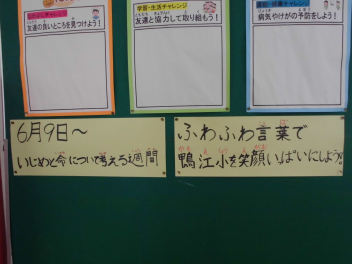 友達の良いところを見つけよう！
学習・生活チャレンジ
友達と協力して取り組もう！
病気やけがの予防をしよう！
6月9日〜
いじめと命について考える週間
ふわふわ言葉で
鴨江小を笑顔いっぱいにしよう。